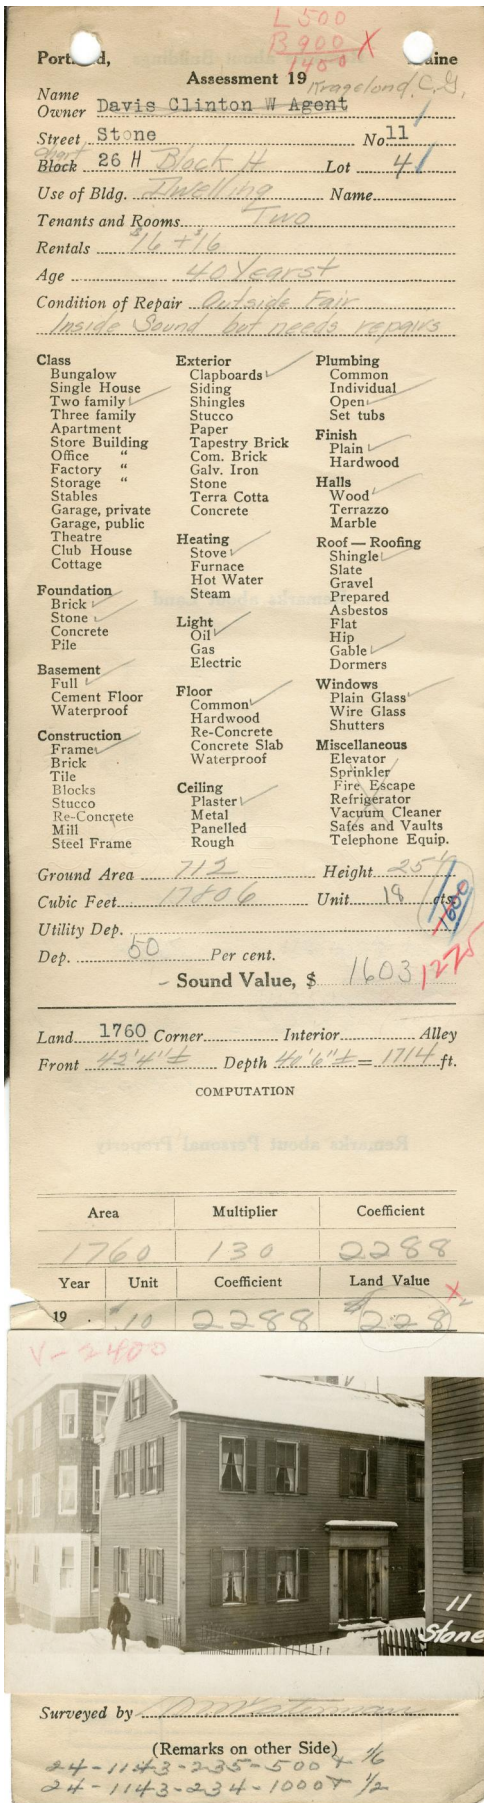 L 500
B 900 X
1450
Portland, Maine
Assessment 19
Kragelund, C. G.
Name
Owner Davis Clinton W Agent
Street Stone No 11
Chart
Block 26 H Block H Lot 4
Use of Bldg. Dwelling Name
Tenants and Rooms Two
Rentals $16 + $16
Age 40 Years +
Condition of Repair Outside Fair
Inside Sound but needs repairs
Class
Bungalow
Single House
Two family ✓
Three family
Apartment
Store Building
Office "
Factory "
Storage "
Stables
Garage, private
Garage, public
Theatre
Club House
Cottage
Foundation
Brick ✓
Stone ✓
Concrete
Pile
Basement
Full ✓
Cement Floor
Waterproof
Construction
Frame ✓
Brick
Tile
Blocks
Stucco
Re-Concrete
Mill
Steel Frame
Exterior
Clapboards ✓
Siding
Shingles
Stucco
Paper
Tapestry Brick
Com. Brick
Galv. Iron
Stone
Terra Cotta
Concrete
Heating
Stove ✓
Furnace
Hot Water
Steam
Light
Oil ✓
Gas
Electric
Floor
Common ✓
Hardwood
Re-Concrete
Concrete Slab
Waterproof
Ceiling
Plaster ✓
Metal
Panelled
Rough
Plumbing
Common
Individual
Open ✓
Set tubs
Finish
Plain ✓
Hardwood
Halls
Wood ✓
Terrazzo
Marble
Roof — Roofing
Shingle ✓
Slate
Gravel
Prepared
Asbestos
Flat
Hip
Gable ✓
Dormers
Windows
Plain Glass ✓
Wire Glass
Shutters
Miscellaneous
Elevator
Sprinkler
Fire Escape
Refrigerator
Vacuum Cleaner
Safes and Vaults
Telephone Equip.
Ground Area 712 Height 25
Cubic Feet 17806 Unit 18 cts.
1600
Utility Dep.
Dep. 50 Per cent.
Sound Value, $ 1603 1275
Land 1760 Corner Interior Alley
Front 42'4"± Depth 40'6"± = 1714 ft.
COMPUTATION
Area Multiplier Coefficient
1760 130 2288
Year Unit Coefficient Land Value
19 $.10 2288 $228 X
V-2400
11
Stone
Surveyed by
(Remarks on other Side)
24-1143-235-500+ 1/6
24-1143-234-1000+ 1/2